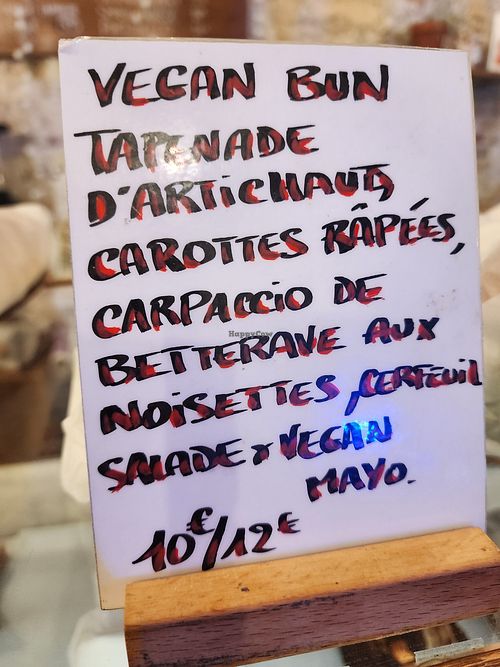 VEGAN BUN
TAPENADE
D'ARTICHAUTS,
CAROTTES RÂPÉES,
CARPACCIO DE
BETTERAVE AUX
NOISETTES, CERFEUIL
SALADE & VEGAN
MAYO.
10€/12€
HappyCow